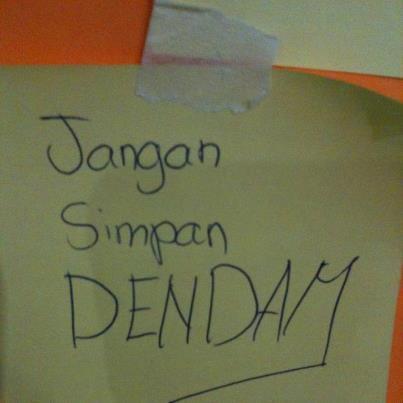 Jangan
Simpan
DENDAM